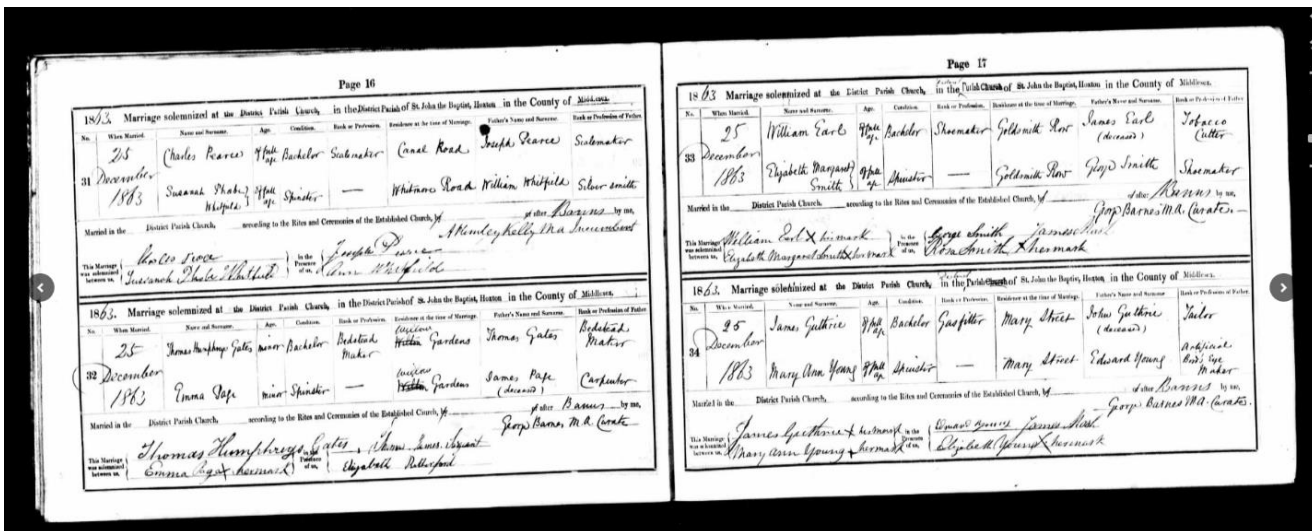 Page 16
1863. Marriage solemnized at the District Parish Church, in the District Parish of St. John the Baptist, Hoxton in the County of Middlesex
No. When Married. Name and Surname. Age. Condition. Rank or Profession. Residence at the time of Marriage. Father's Name and Surname. Rank or Profession of Father.
31 25 December 1863 Charles Pearce Of full age Bachelor Scalemaker Canal Road Joseph Pearce Scalemaker
Susanah Phebe Whitfield Of full age Spinster — Whitmore Road William Whitfield Silver smith
Married in the District Parish Church, according to the Rites and Ceremonies of the Established Church, or after Banns by me,
A Kemley Kelly M.A. Incumbent
This Marriage was solemnized between us, Charles in the Presence of us, Joseph Pearce
Susanah Phebe Whitfield Ann Whitfield
1863. Marriage solemnized at the District Parish Church, in the District Parish of St. John the Baptist, Hoxton in the County of Middlesex.
No. When Married. Name and Surname. Age. Condition. Rank or Profession. Residence at the time of Marriage. Father's Name and Surname. Rank or Profession of Father.
32 25 December 1863 Thomas Humphrys Gates minor Bachelor Bedstead Maker Gardens Thomas Gates Bedstead Maker
Emma Page minor Spinster — Gardens James Page (deceased) Carpenter
Married in the District Parish Church, according to the Rites and Ceremonies of the Established Church, or after Banns by me,
George Barnes M.A. Curate
This Marriage was solemnized between us, Thomas Humphrys Gates in the Presence of us, James
Emma Page X her mark Elizabeth Rutherford
Page 17
1863 Marriage solemnized at the District Parish Church, in the District Parish Church of St. John the Baptist, Hoxton in the County of Middlesex.
No. When Married. Name and Surname. Age. Condition. Rank or Profession. Residence at the time of Marriage. Father's Name and Surname. Rank or Profession of Father
33 25 December 1863 William Earl Of full age Bachelor Shoemaker Goldsmith Row James Earl (deceased) Tobacco Cutter
Elizabeth Margaret Smith Of full age Spinster — Goldsmith Row George Smith Shoemaker
Married in the District Parish Church, according to the Rites and Ceremonies of the Established Church, or after Banns by me,
George Barnes M.A. Curate
This Marriage was solemnized between us, William Earl X his mark in the Presence of us, George Smith James
Elizabeth Margaret Smith X her mark Rose Smith X her mark
1863. Marriage solemnized at the District Parish Church, in the District Parish Church of St. John the Baptist, Hoxton in the County of Middlesex
No. When Married. Name and Surname. Age. Condition. Rank or Profession. Residence at the time of Marriage. Father's Name and Surname Rank or Profession of Father.
34 25 December 1863 James Guthrie Of full age Bachelor Gasfitter Mary Street John Guthrie (deceased) Tailor
Mary Ann Young Of full age Spinster — Mary Street Edward Young Artificial Bird's Eye Maker
Married in the District Parish Church, according to the Rites and Ceremonies of the Established Church, or after Banns by me,
George Barnes M.A. Curate.
This Marriage was solemnized between us, James Guthrie X his mark in the Presence of us, Edward Young James
Mary Ann Young X her mark Elizabeth Young X her mark